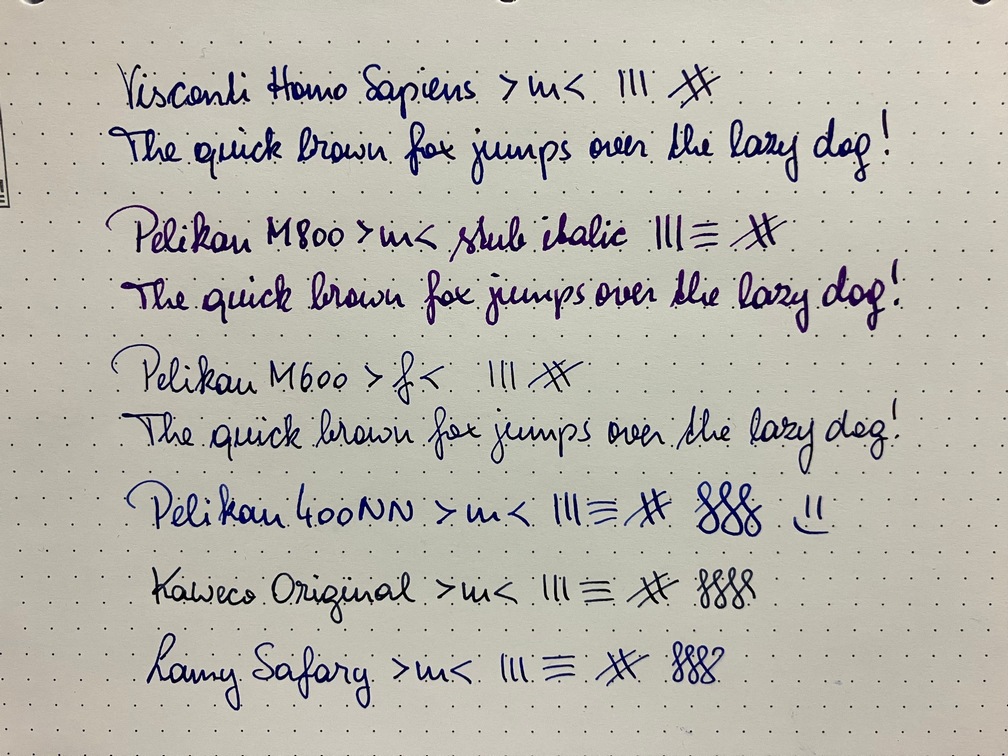 Visconti Homo Sapiens >m< ||| #
The quick brown fox jumps over the lazy dog!
Pelikan M800 >m< stub italic |||≡ #
The quick brown fox jumps over the lazy dog!
Pelikan M600 >f< ||| #
The quick brown fox jumps over the lazy dog!
Pelikan 400NN >m< |||≡ #
Kaweco Original >m< |||≡ #
Lamy Safary >m< ||| ≡ #